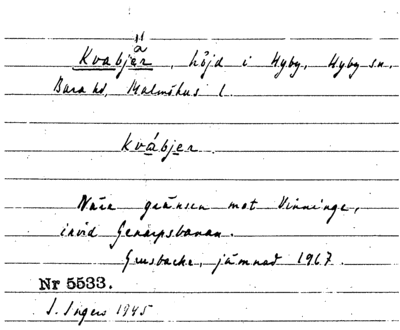 Kvabjär, höjd i Hyby, Hyby sn.
Bara hd, Malmöhus l.
Kvábjer
Nära gränsen mot Vinninge,
invid Genarpsbanan.
Grusbacke, jämnad 1967.
Nr 5533.
I. Ingers 1945